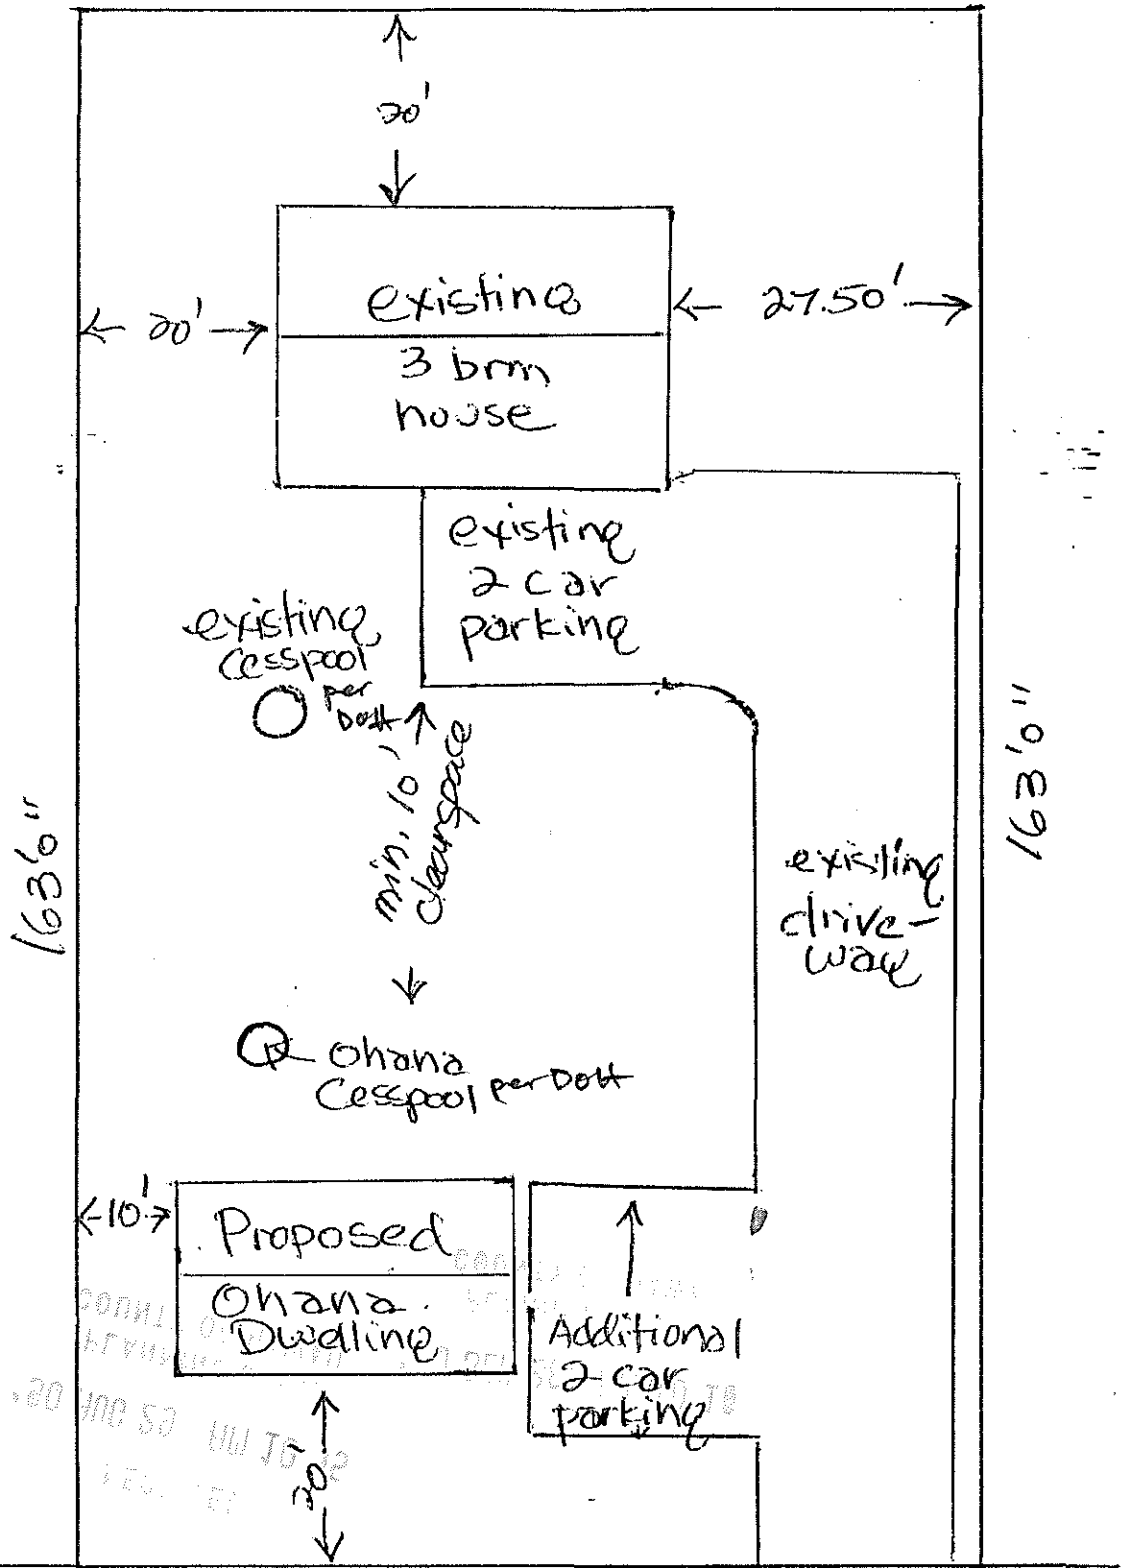 20'
existing
3 brm
house
20'
27.50'
existing
2 car
parking
existing
Cesspool
per
DOH
min. 10'
clearspace
163'0"
163'0"
existing
drive-
way
ohana
Cesspool per DOH
10'
Proposed
Ohana
Dwelling
Additional
2-car
parking
20'